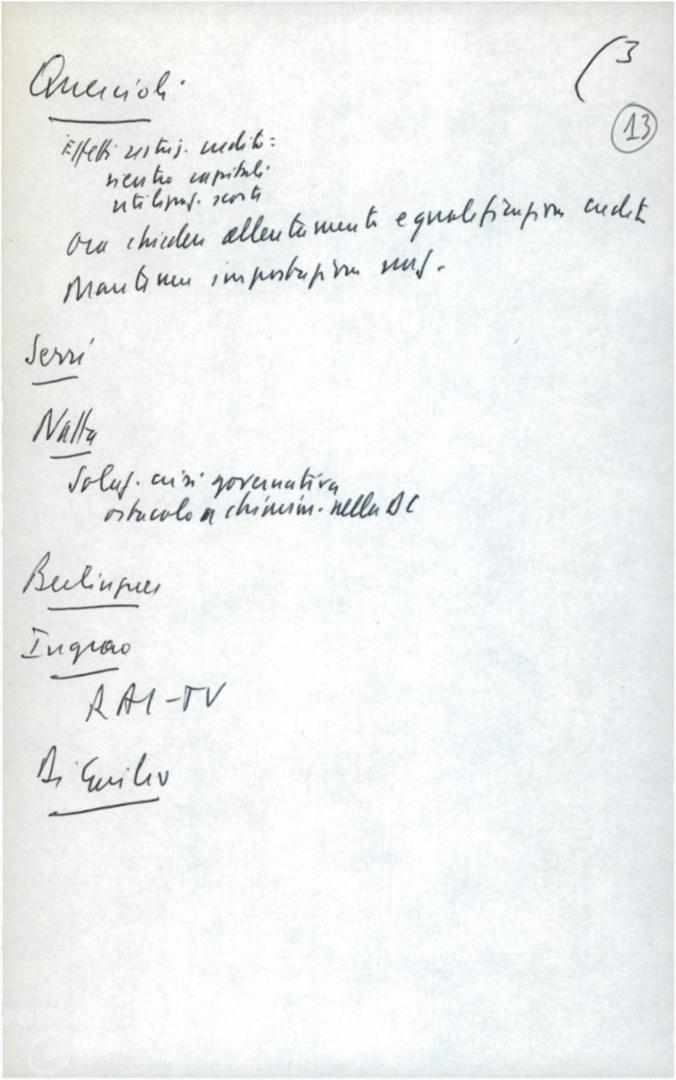 (3
13
Quercioli
Effetti restriz. credito:
rientro capitali
utilizzaz. scorte
Ora chiedere allentamento e qualificazione credito
Mantenere impostazione
Serri
Natta
Soluz. crisi governativa
ostacolo a chiarim. nella DC
Berlinguer
Ingrao
RAI-TV
Di Giulio